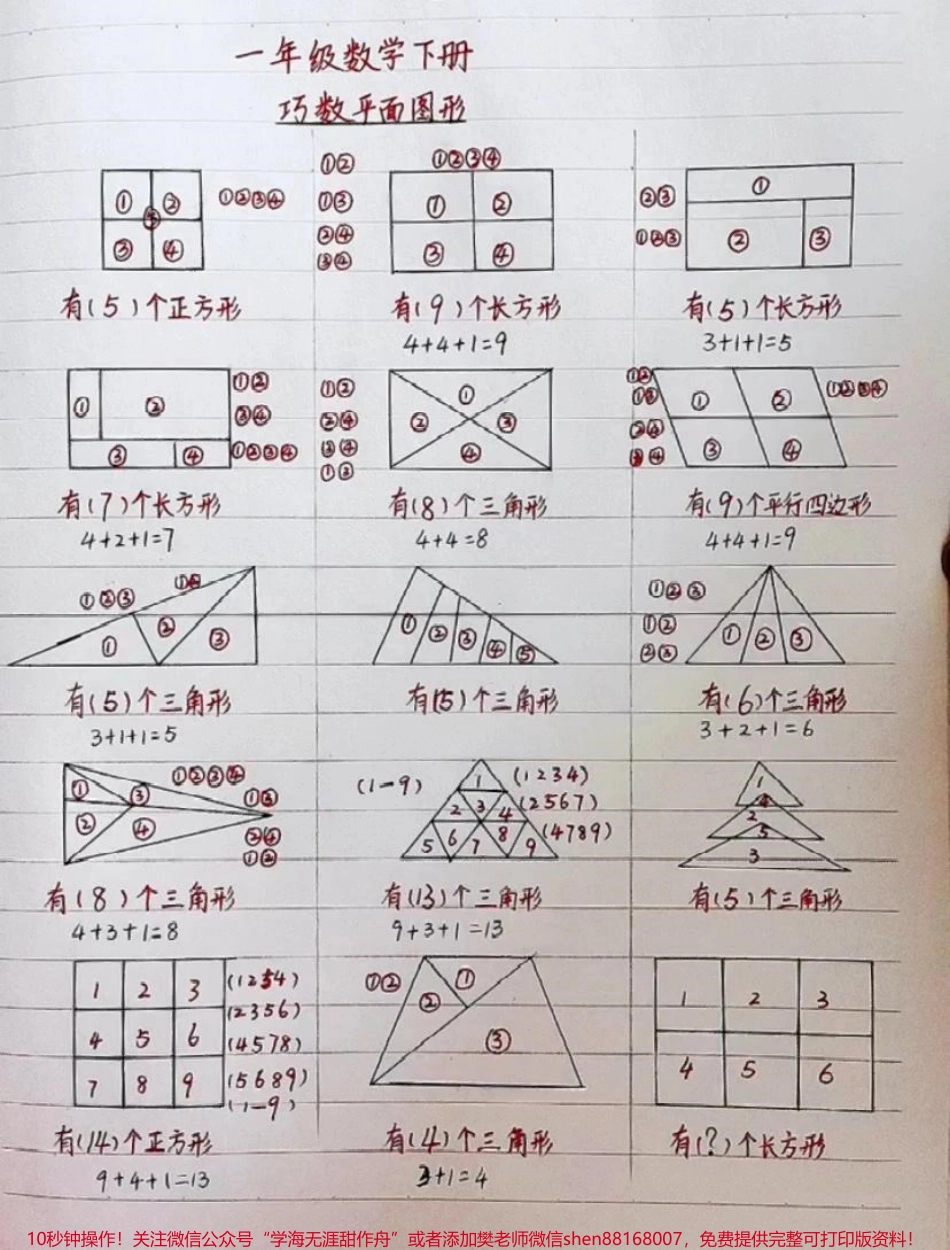 一年级数学下册
巧数平面图形
①②③④
① ②
⑤
③ ④
有(5)个正方形
①②
①③
②④
③④
①②③④
① ②
③ ④
有(9)个长方形
4+4+1=9
②③
①②③
①
② ③
有(5)个长方形
3+1+1=5
① ②
③ ④
①②
③④
①②③④
有(7)个长方形
4+2+1=7
①②
②④
③④
①③
①
② ③
④
有(8)个三角形
4+4=8
①②
①③
②④
③④
① ②
③ ④
①②③④
有(9)个平行四边形
4+4+1=9
①②③
①②
① ② ③
有(5)个三角形
3+1+1=5
① ② ③ ④ ⑤
有(15)个三角形
①②③
①②
②③
① ② ③
有(6)个三角形
3+2+1=6
①②③④
①③
②④
①②
① ③
② ④
有(8)个三角形
4+3+1=8
(1-9)
1
2 3 4
5 6 7 8 9
(1234)
(2567)
(4789)
有(13)个三角形
9+3+1=13
1
4
2
5
3
有(5)个三角形
1 2 3
4 5 6
7 8 9
(1254)
(2356)
(4578)
(5689)
(1-9)
有(14)个正方形
9+4+1=13
①②
①
②
③
有(4)个三角形
3+1=4
1 2 3
4 5 6
有(?)个长方形
10秒钟操作！关注微信公众号“学海无涯甜作舟”或者添加樊老师微信shen88168007，免费提供完整可打印版资料！